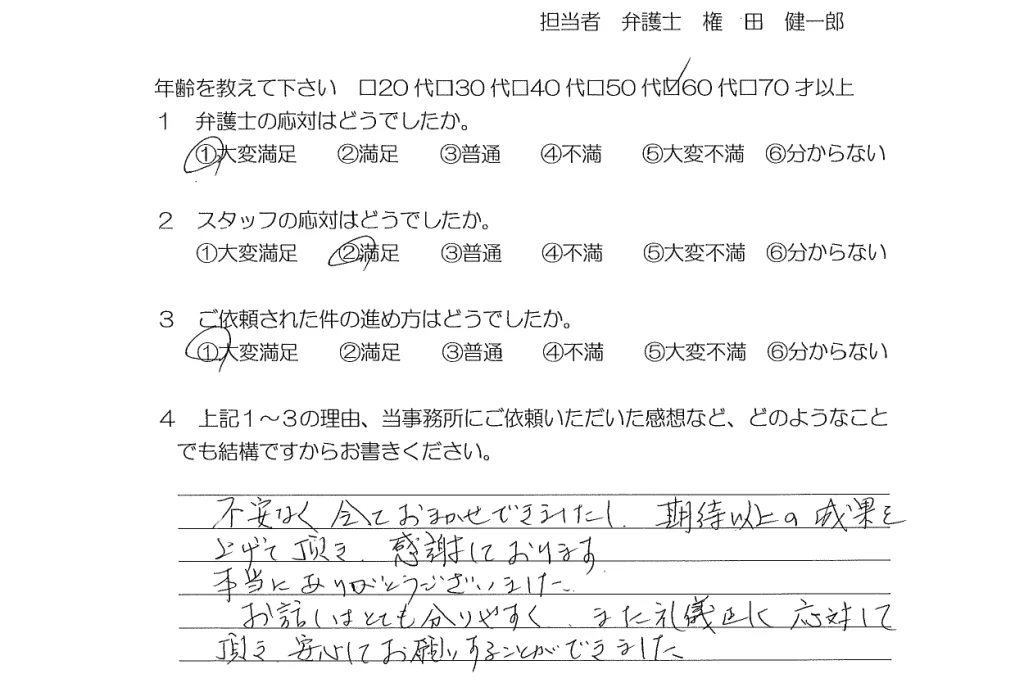 担当者　弁護士　権　田　健一郎
年齢を教えて下さい　□20代□30代□40代□50代☑60代□70才以上
１　弁護士の応対はどうでしたか。
①大変満足　②満足　③普通　④不満　⑤大変不満　⑥分からない
２　スタッフの応対はどうでしたか。
①大変満足　②満足　③普通　④不満　⑤大変不満　⑥分からない
３　ご依頼された件の進め方はどうでしたか。
①大変満足　②満足　③普通　④不満　⑤大変不満　⑥分からない
４　上記１～３の理由、当事務所にご依頼いただいた感想など、どのようなこと
でも結構ですからお書きください。
不安なく全ておまかせできましたし、期待以上の成果を
上げて頂き、感謝しております
本当にありがとうございました。
お話しはとても分りやすく、また礼儀正しく応対して
頂き、安心してお願いすることができました